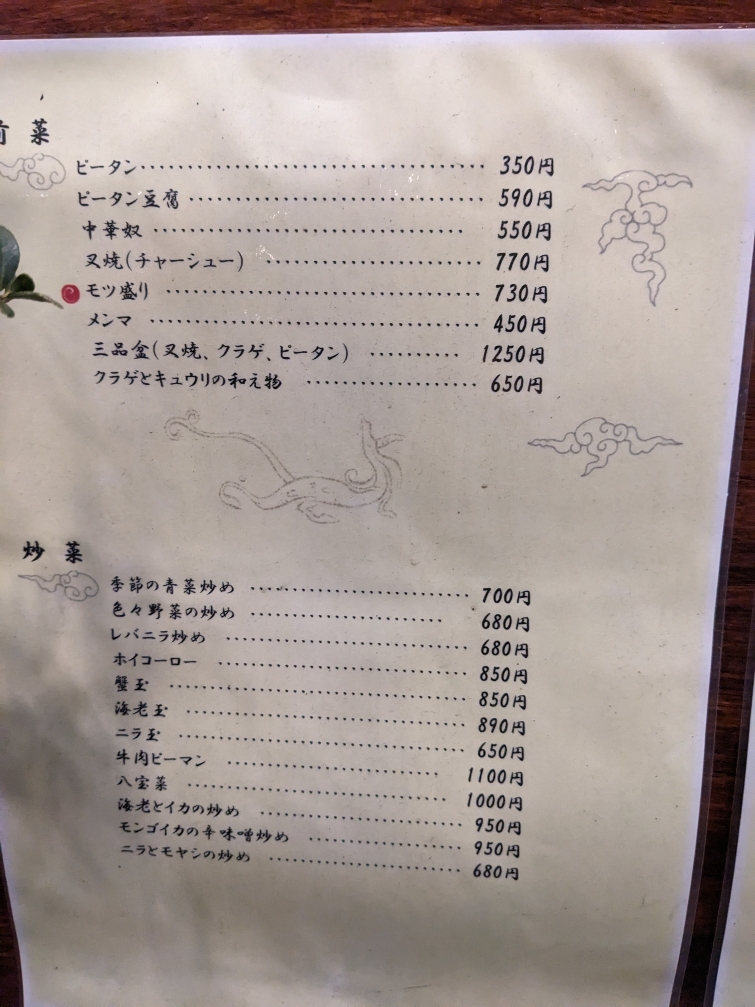 前菜
ピータン 350円
ピータン豆腐 590円
中華奴 550円
叉焼(チャーシュー) 770円
モツ盛り 730円
メンマ 450円
三品盒(叉焼、クラゲ、ピータン) 1250円
クラゲとキュウリの和え物 650円
炒菜
季節の青菜炒め 700円
色々野菜の炒め 680円
レバニラ炒め 680円
ホイコーロー 850円
蟹玉 850円
海老玉 890円
ニラ玉 650円
牛肉ピーマン 1100円
八宝菜 1000円
海老とイカの炒め 950円
モンゴイカの辛味噌炒め 950円
ニラとモヤシの炒め 680円